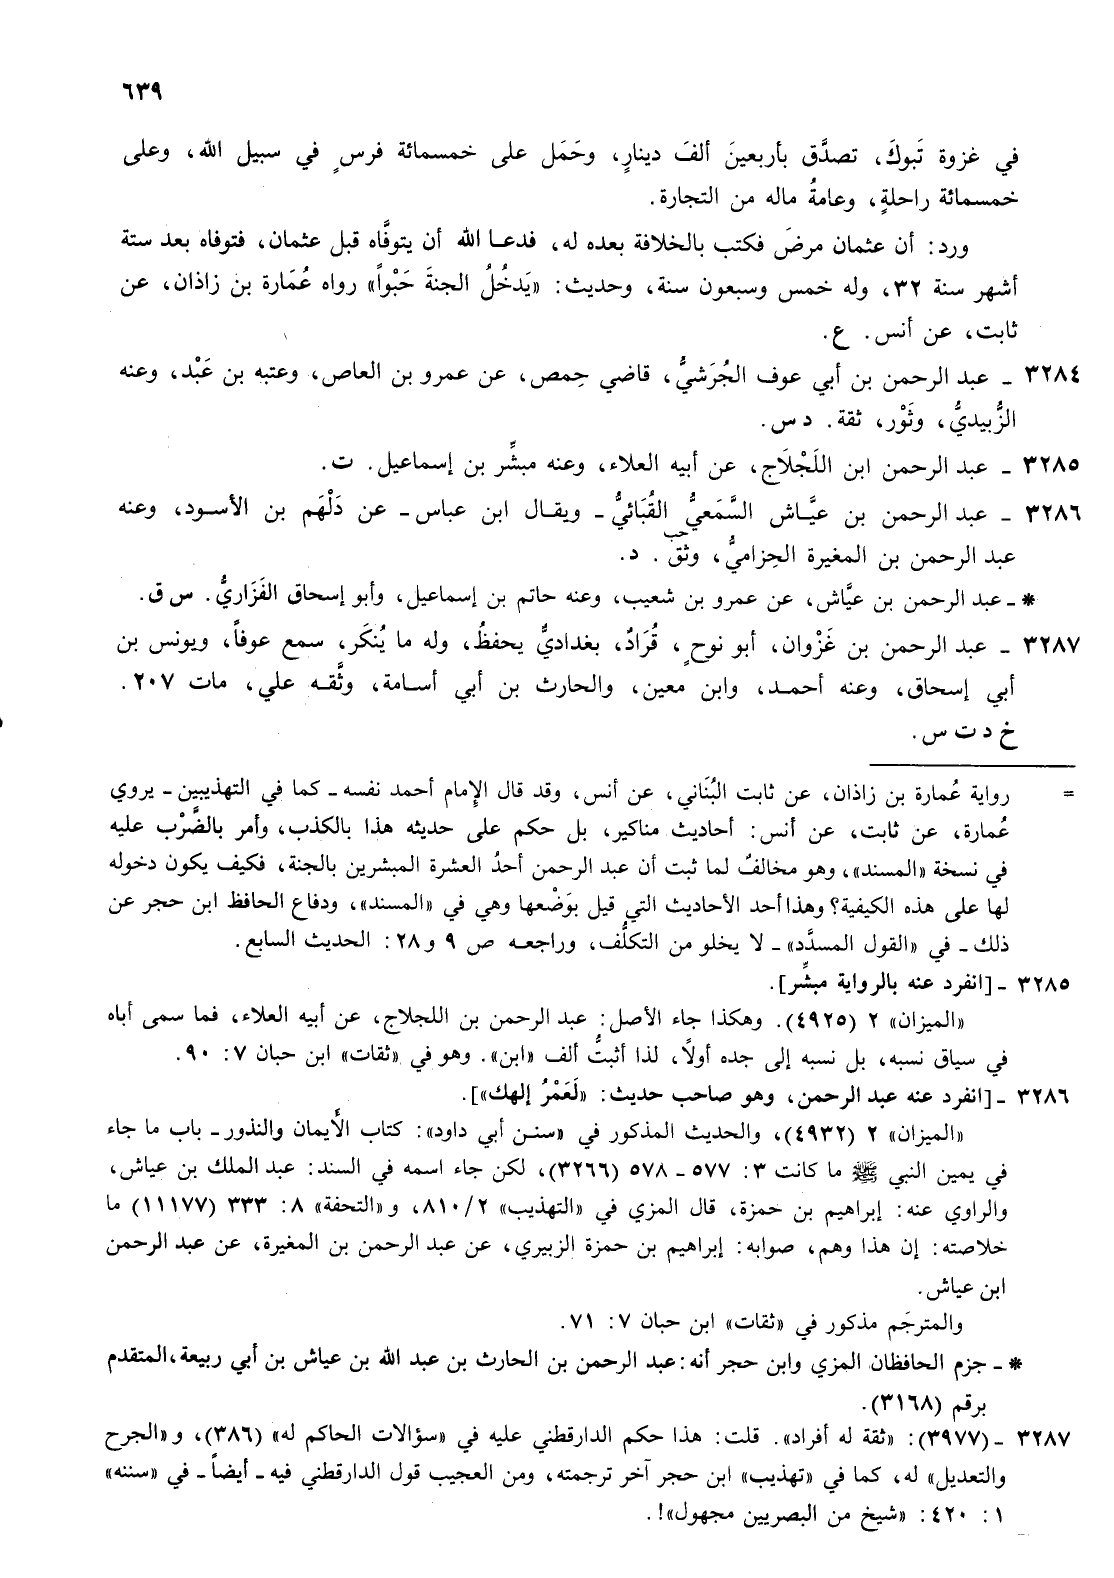 ٦٣٩
في غزوة تَبوكَ، تصدَّق بأربعينَ ألفَ دينارٍ، وحَمَل على خمسمائة فرسٍ في سبيل الله، وعلى
خمسمائة راحلةٍ، وعامةُ ماله من التجارة.
ورد: أن عثمان مرضَ فكتب بالخلافة بعده له، فدعا الله أن يتوفَّاه قبل عثمان، فتوفاه بعد ستة
أشهر سنة ٣٢، وله خمس وسبعون سنة، وحديث: «يَدخُلُ الجنةَ حَبْواً» رواه عُمَارة بن زاذان، عن
ثابت، عن أنس. ع.
٣٢٨٤ ـ عبد الرحمن بن أبي عوف الجُرَشيُّ، قاضي حِمص، عن عمرو بن العاص، وعتبه بن عَبْد، وعنه
الزُّبيديُّ، وثَوْر، ثقة. د س.
٣٢٨٥ ـ عبد الرحمن ابن اللَجْلَاج، عن أبيه العلاء، وعنه مبشِّر بن إسماعيل. ت.
٣٢٨٦ ـ عبد الرحمن بن عيَّاش السَّمَعيُّ القُبَائيُّ ـ ويقال ابن عباس ـ عن دَلْهَم بن الأسود، وعنه
عبد الرحمن بن المغيرة الحِزاميُّ، وثق حب. د.
* ـ عبد الرحمن بن عيَّاش، عن عمرو بن شعيب، وعنه حاتم بن إسماعيل، وأبو إسحاق الفَزَاريُّ. س ق.
٣٢٨٧ ـ عبد الرحمن بن غَزْوان، أبو نوحٍ، قُرَادٌ، بغداديٌّ يحفظُ، وله ما يُنكَر، سمع عوفاً، ويونس بن
أبي إسحاق، وعنه أحمد، وابن معين، والحارث بن أبي أسامة، وثَّقه علي، مات ٢٠٧.
خ د ت س.
= رواية عُمارة بن زاذان، عن ثابت البُنَاني، عن أنس، وقد قال الإمام أحمد نفسه ـ كما في التهذيبين ـ يروي
عُمارة، عن ثابت، عن أنس: أحاديث مناكير، بل حكم على حديثه هذا بالكذب، وأمر بالضَّرْب عليه
في نسخة «المسند»، وهو مخالفٌ لما ثبت أن عبد الرحمن أحدُ العشرة المبشرين بالجنة، فكيف يكون دخوله
لها على هذه الكيفية؟ وهذا أحد الأحاديث التي قيل بوَضْعها وهي في «المسند»، ودفاع الحافظ ابن حجر عن
ذلك ـ في «القول المسدَّد» ـ لا يخلو من التكلُّف، وراجعه ص ٩ و ٢٨: الحديث السابع.
٣٢٨٥ ـ [انفرد عنه بالرواية مبشِّر].
«الميزان» ٢ (٤٩٢٥). وهكذا جاء الأصل: عبد الرحمن بن اللجلاج، عن أبيه العلاء، فما سمى أباه
في سياق نسبه، بل نسبه إلى جده أولاً، لذا أثبتُّ ألف «ابن». وهو في «ثقات» ابن حبان ٧: ٩٠.
٣٢٨٦ ـ [انفرد عنه عبد الرحمن، وهو صاحب حديث: «لَعَمْرُ إلهك»].
«الميزان» ٢ (٤٩٣٢)، والحديث المذكور في «سنن أبي داود»: كتاب الأَيمان والنذور ـ باب ما جاء
في يمين النبي ﷺ ما كانت ٣: ٥٧٧ ـ ٥٧٨ (٣٢٦٦)، لكن جاء اسمه في السند: عبد الملك بن عياش،
والراوي عنه: إبراهيم بن حمزة، قال المزي في «التهذيب» ٨١٠/٢، و «التحفة» ٨: ٣٣٣ (١١١٧٧) ما
خلاصته: إن هذا وهم، صوابه: إبراهيم بن حمزة الزبيري، عن عبد الرحمن بن المغيرة، عن عبد الرحمن
ابن عياش.
والمترجَم مذكور في «ثقات» ابن حبان ٧: ٧١.
* ـ جزم الحافظان المزي وابن حجر أنه: عبد الرحمن بن الحارث بن عبد الله بن عياش بن أبي ربيعة، المتقدم
برقم (٣١٦٨).
٣٢٨٧ ـ (٣٩٧٧): «ثقة له أفراد». قلت: هذا حكم الدارقطني عليه في «سؤالات الحاكم له» (٣٨٦)، و «الجرح
والتعديل» له، كما في «تهذيب» ابن حجر آخر ترجمته، ومن العجيب قول الدارقطني فيه ـ أيضاً ـ في «سننه»
١: ٤٢٠: «شيخ من البصريين مجهول»!.